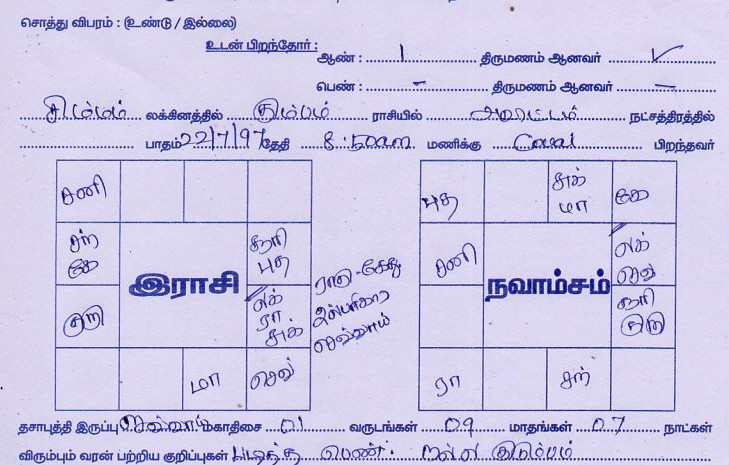 சொத்து விபரம் : (உண்டு / இல்லை)
உடன் பிறந்தோர் :
ஆண் : 1 திருமணம் ஆனவர் ✓
பெண் : - திருமணம் ஆனவர் -
சிம்மம் லக்கினத்தில் கும்பம் ராசியில் அவிட்டம் நட்சத்திரத்தில்
பாதம் 22/7/97 தேதி 8:50am மணிக்கு Covai பிறந்தவர்
சனி
சந்
கே
குரு
மா
செவ்
லக்
ரா
சுக்
சூரி
புத
இராசி
ராகு-கேது
செவ்வாய்
புத
சுக்
மா
கே
சனி
லக்
செவ்
சூரி
குரு
ரா
சந்
நவாம்சம்
தசாபுத்தி இருப்பு செவ்வாய் மகாதிசை 01 வருடங்கள் 09 மாதங்கள் 07 நாட்கள்
விரும்பும் வரன் பற்றிய குறிப்புகள் படித்த பெண். நல்ல குடும்பம்